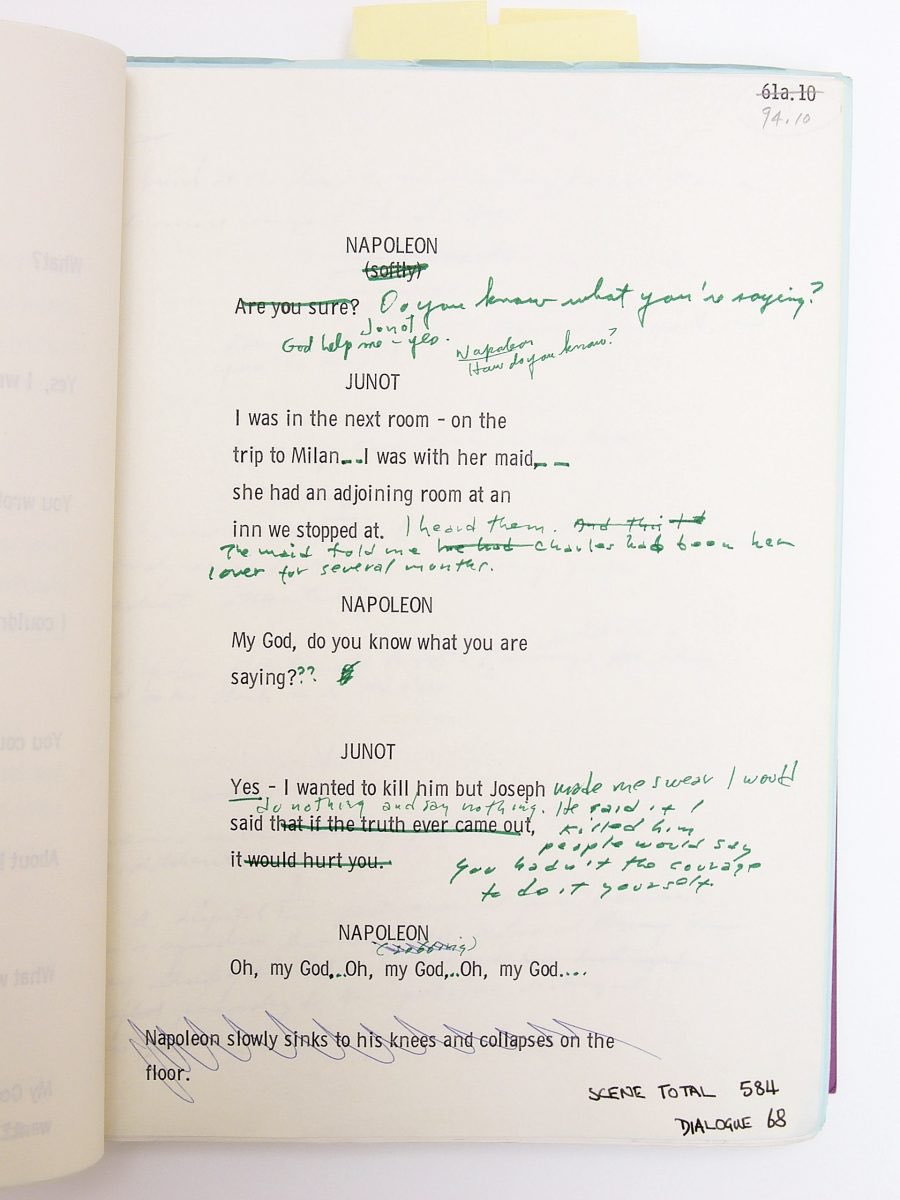 61a.10
94.10
NAPOLEON
(softly)
Are you sure? Do you know what you're saying?
Junot
God help me - yes.
Napoleon
How do you know?
JUNOT
I was in the next room - on the
trip to Milan...I was with her maid, --
she had an adjoining room at an
inn we stopped at. I heard them. And this
The maid told me he had Charles had been her
lover for several months.
NAPOLEON
My God, do you know what you are
saying???
JUNOT
Yes - I wanted to kill him but Joseph made me swear I would
do nothing and say nothing. He said if I
said that if the truth ever came out, killed him
people would say
it would hurt you. you hadn't the courage
to do it yourself.
NAPOLEON
(sobbing)
Oh, my God...Oh, my God...Oh, my God....
Napoleon slowly sinks to his knees and collapses on the
floor.
SCENE TOTAL 584
DIALOGUE 68
What?
Yes, I w
You wrot
I couldn
You cou
About
What w
My Go